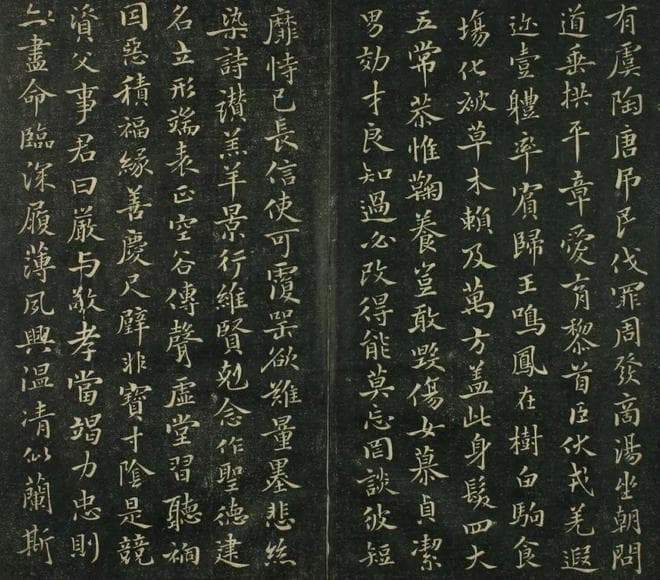 有虞陶唐吊民伐罪周發商湯坐朝問
道垂拱平章愛育黎首臣伏戎羌遐
迩壹體率賓歸王鳴鳳在樹白駒食
場化被草木賴及萬方盖此身髮四大
五常恭惟鞠養豈敢毀傷女慕貞潔
男効才良知過必改得能莫忘罔談彼短
靡恃己長信使可覆器欲難量墨悲絲
染詩讃羔羊景行維賢剋念作聖德建
名立形端表正空谷傳聲虛堂習聽禍
因惡積福緣善慶尺璧非寶寸陰是競
資父事君曰嚴与敬孝當竭力忠則
盡命臨深履薄夙興温清似蘭斯